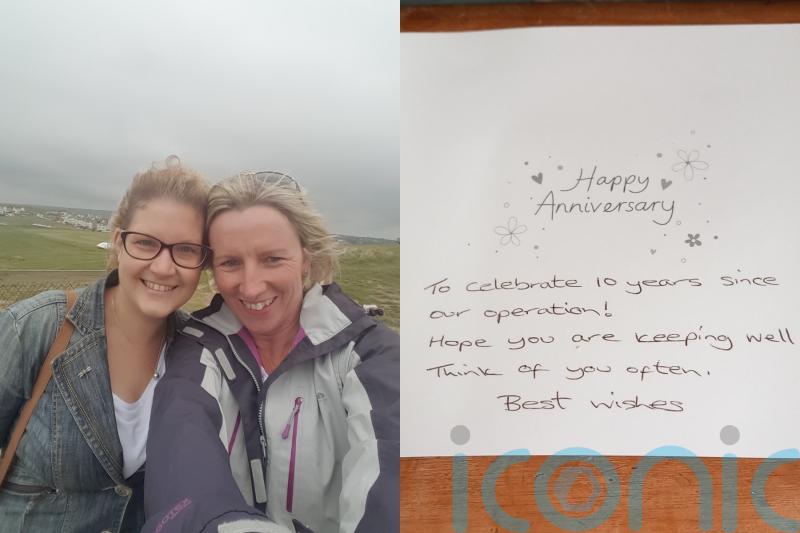 Happy
Anniversary
To celebrate 10 years since
our operation!
Hope you are keeping well
Think of you often.
Best wishes
iconic